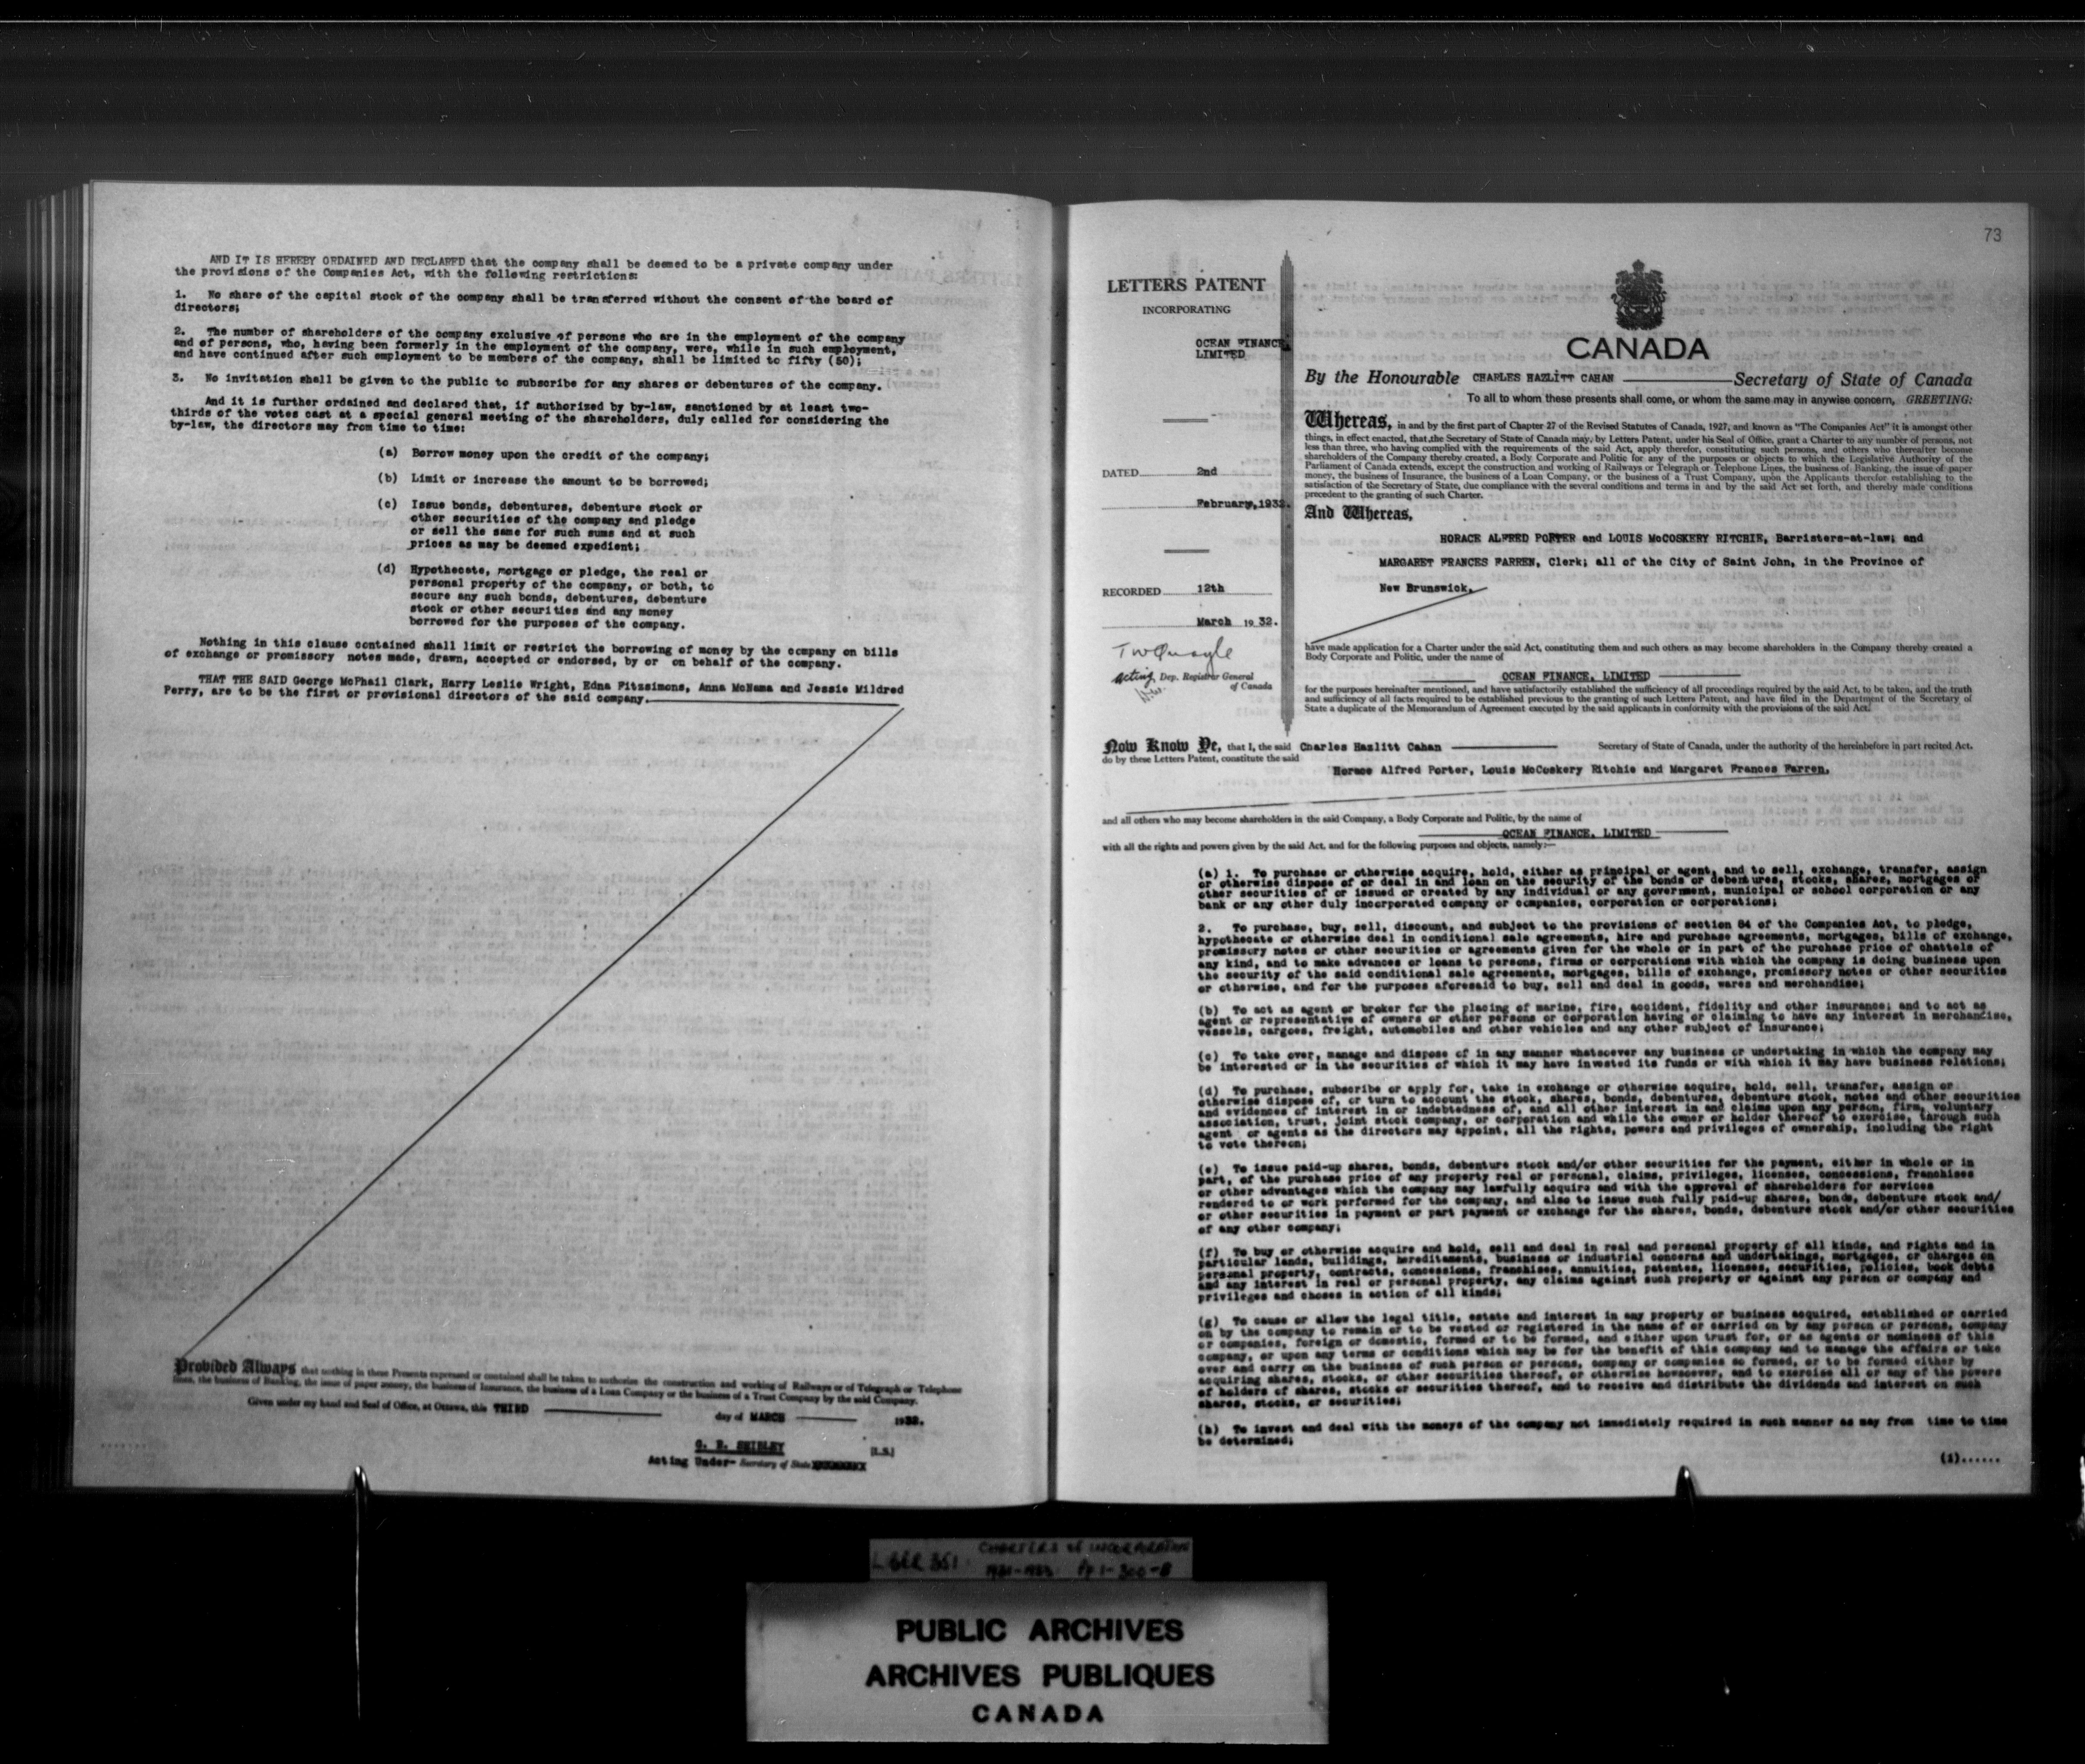 AND IT IS HEREBY ORDAINED AND DECLARED that the company shall be deemed to be a private company under
the provisions of the Companies Act, with the following restrictions:
1. No share of the capital stock of the company shall be transferred without the consent of the board of
directors;
2. The number of shareholders of the company exclusive of persons who are in the employment of the company
and of persons, who, having been formerly in the employment of the company, were, while in such employment,
and have continued after such employment to be members of the company, shall be limited to fifty (50);
3. No invitation shall be given to the public to subscribe for any shares or debentures of the company.
And it is further ordained and declared that, if authorized by by-law, sanctioned by at least two-
thirds of the votes cast at a special general meeting of the shareholders, duly called for considering the
by-law, the directors may from time to time:
(a) Borrow money upon the credit of the company;
(b) Limit or increase the amount to be borrowed;
(c) Issue bonds, debentures, debenture stock or
other securities of the company and pledge
or sell the same for such sums and at such
prices as may be deemed expedient;
(d) Hypothecate, mortgage or pledge, the real or
personal property of the company, or both, to
secure any such bonds, debentures, debenture
stock or other securities and any money
borrowed for the purposes of the company.
Nothing in this clause contained shall limit or restrict the borrowing of money by the company on bills
of exchange or promissory notes made, drawn, accepted or endorsed, by or on behalf of the company.
THAT THE SAID George McPhail Clark, Harry Leslie Wright, Edna Fitzsimons, Anna McNama and Jessie Mildred
Perry, are to be the first or provisional directors of the said company.
Provided Always that nothing in these Presents expressed or contained shall be taken to authorize the construction and working of Railways or of Telegraph or Telephone
lines, the business of Banking, the issue of paper money, the business of Insurance, the business of a Loan Company or the business of a Trust Company by the said Company.
Given under my hand and Seal of Office, at Ottawa, this THIRD day of MARCH 1932.
G. R. SHIBLEY [L.S.]
Acting Under- Secretary of State
73
LETTERS PATENT
INCORPORATING
OCEAN FINANCE,
LIMITED
DATED 2nd
February, 1932.
RECORDED 12th
March 1932.
acting Dep. Registrar General
of Canada
CANADA
By the Honourable CHARLES HAZLITT CAHAN Secretary of State of Canada
To all to whom these presents shall come, or whom the same may in anywise concern, GREETING:
Whereas, in and by the first part of Chapter 27 of the Revised Statutes of Canada, 1927, and known as "The Companies Act" it is amongst other
things, in effect enacted, that the Secretary of State of Canada may, by Letters Patent, under his Seal of Office, grant a Charter to any number of persons, not
less than three, who having complied with the requirements of the said Act, apply therefor, constituting such persons, and others who thereafter become
shareholders of the Company thereby created, a Body Corporate and Politic for any of the purposes or objects to which the Legislative Authority of the
Parliament of Canada extends, except the construction and working of Railways or Telegraph or Telephone Lines, the business of Banking, the issue of paper
money, the business of Insurance, the business of a Loan Company, or the business of a Trust Company, upon the Applicants therefor establishing to the
satisfaction of the Secretary of State, due compliance with the several conditions and terms in and by the said Act set forth, and thereby made conditions
precedent to the granting of such Charter.
And Whereas,
HORACE ALFRED PORTER and LOUIS McCOSKERY RITCHIE, Barristers-at-law; and
MARGARET FRANCES FARREN, Clerk; all of the City of Saint John, in the Province of
New Brunswick,
have made application for a Charter under the said Act, constituting them and such others as may become shareholders in the Company thereby created a
Body Corporate and Politic, under the name of
OCEAN FINANCE, LIMITED
for the purposes hereinafter mentioned, and have satisfactorily established the sufficiency of all proceedings required by the said Act, to be taken, and the truth
and sufficiency of all facts required to be established previous to the granting of such Letters Patent, and have filed in the Department of the Secretary of
State a duplicate of the Memorandum of Agreement executed by the said applicants in conformity with the provisions of the said Act.
Now Know Ye, that I, the said Charles Hazlitt Cahan Secretary of State of Canada, under the authority of the hereinbefore in part recited Act,
do by these Letters Patent, constitute the said
Horace Alfred Porter, Louis McCoskery Ritchie and Margaret Frances Farren,
and all others who may become shareholders in the said Company, a Body Corporate and Politic, by the name of
OCEAN FINANCE, LIMITED
with all the rights and powers given by the said Act, and for the following purposes and objects, namely:—
(a) 1. To purchase or otherwise acquire, hold, either as principal or agent, and to sell, exchange, transfer, assign
or otherwise dispose of or deal in and loan on the security of the bonds or debentures, stocks, shares, mortgages or
other securities of or issued or created by any individual or any government, municipal or school corporation or any
bank or any other duly incorporated company or companies, corporation or corporations;
2. To purchase, buy, sell, discount, and subject to the provisions of section 64 of the Companies Act, to pledge,
hypothecate or otherwise deal in conditional sale agreements, hire and purchase agreements, mortgages, bills of exchange,
promissory notes or other securities or agreements given for the whole or in part of the purchase price of chattels of
any kind, and to make advances or loans to persons, firms or corporations with which the company is doing business upon
the security of the said conditional sale agreements, mortgages, bills of exchange, promissory notes or other securities
or otherwise, and for the purposes aforesaid to buy, sell and deal in goods, wares and merchandise;
(b) To act as agent or broker for the placing of marine, fire, accident, fidelity and other insurance; and to act as
agent or representative of owners or other persons or corporation having or claiming to have any interest in merchandise,
vessels, cargoes, freight, automobiles and other vehicles and any other subject of insurance;
(c) To take over, manage and dispose of in any manner whatsoever any business or undertaking in which the company may
be interested or in the securities of which it may have invested its funds or with which it may have business relations;
(d) To purchase, subscribe or apply for, take in exchange or otherwise acquire, hold, sell, transfer, assign or
otherwise dispose of, or turn to account the stock, shares, bonds, debentures, debenture stock, notes and other securities
and evidences of interest in or indebtedness of, and all other interest in and claims upon any person, firm, voluntary
association, trust, joint stock company, or corporation and while the owner or holder thereof to exercise, through such
agent or agents as the directors may appoint, all the rights, powers and privileges of ownership, including the right
to vote thereon;
(e) To issue paid-up shares, bonds, debenture stock and/or other securities for the payment, either in whole or in
part, of the purchase price of any property real or personal, claims, privileges, licenses, concessions, franchises
or other advantages which the company may lawfully acquire and with the approval of shareholders for services
rendered to or work performed for the company, and also to issue such fully paid-up shares, bonds, debenture stock and/
or other securities in payment or part payment or exchange for the shares, bonds, debenture stock and/or other securities
of any other company;
(f) To buy or otherwise acquire and hold, sell and deal in real and personal property of all kinds, and rights and in
particular lands, buildings, hereditaments, business or industrial concerns and undertakings, mortgages, or charges on
personal property, contracts, concessions, franchises, annuities, patents, licenses, securities, policies, book debts
and any interest in real or personal property, any claims against such property or against any person or company and
privileges and choses in action of all kinds;
(g) To cause or allow the legal title, estate and interest in any property or business acquired, established or carried
on by the company to remain or to be vested or registered in the name of or carried on by any person or persons, company
or companies, foreign or domestic, formed or to be formed, and either upon trust for, or as agents or nominees of this
company, or upon any terms or conditions which may be for the benefit of this company and to manage the affairs or take
over and carry on the business of such person or persons, company or companies so formed, or to be formed either by
acquiring shares, stocks, or other securities thereof, or otherwise howsoever, and to exercise all or any of the powers
of holders of shares, stocks or securities thereof, and to receive and distribute the dividends and interest on such
shares, stocks, or securities;
(h) To invest and deal with the moneys of the company not immediately required in such manner as may from time to time
be determined;
(i)......
LIBER 351 CHARTERS of INCORPORATION
1931-1933 Pp 1-300-B
PUBLIC ARCHIVES
ARCHIVES PUBLIQUES
CANADA